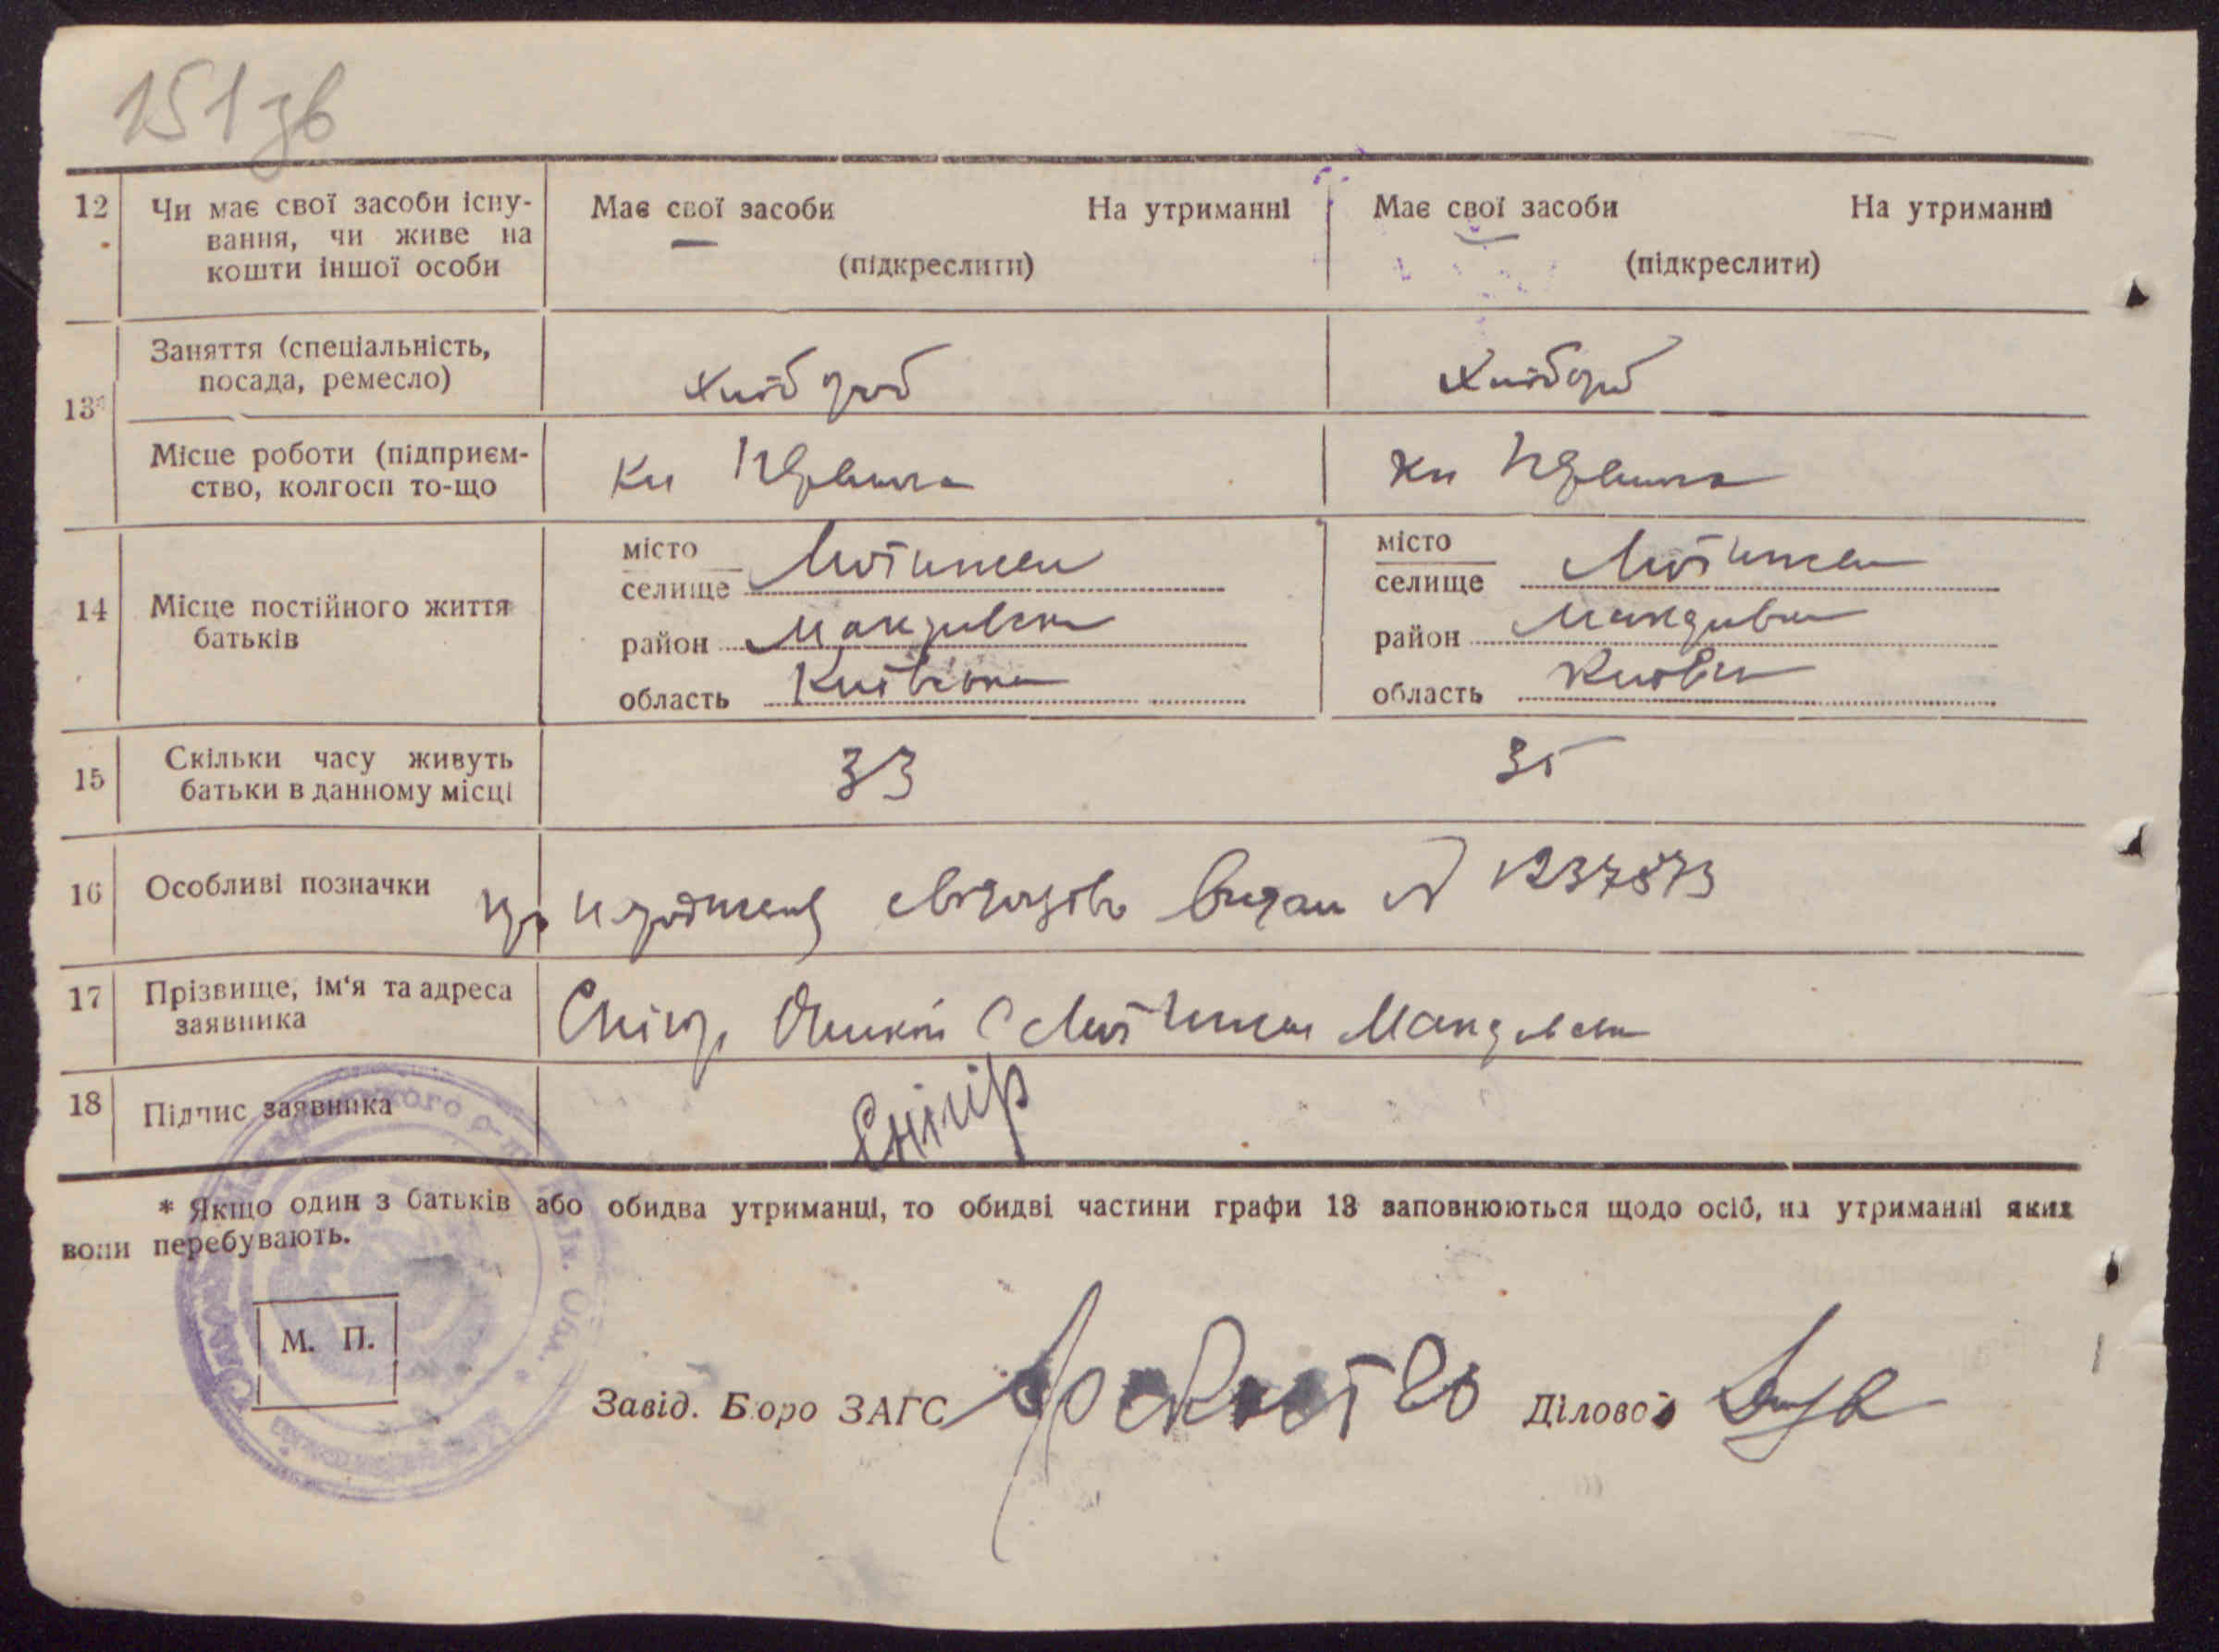 151 зв
12 Чи має свої засоби існу- Має свої засоби На утриманні Має свої засоби На утриманні
вання, чи живе на
кошти іншої особи (підкреслити) (підкреслити)
Заняття (спеціальність, хлібороб хлібороб
посада, ремесло)
13*
Місце роботи (підприєм-
ство, колгосп то-що
місто Мотижин місто Мотижин
селище селище
14 Місце постійного життя район Макарівськ район Макарівськ
батьків
область Київська область Київськ
15 Скільки часу живуть 33 35
батьки в данному місці
16 Особливі позначки про народження свідоцтво видан № 1237873
17 Прізвище, ім'я та адреса Снігир С Мотижин Макарівськ
заявника
18 Підпис заявника Снігир
* Якщо один з батьків або обидва утриманці, то обидві частини графи 13 заповнюються щодо осіб, на утриманні яких
вони перебувають.
М. П.
Завід. Бюро ЗАГС Діловод